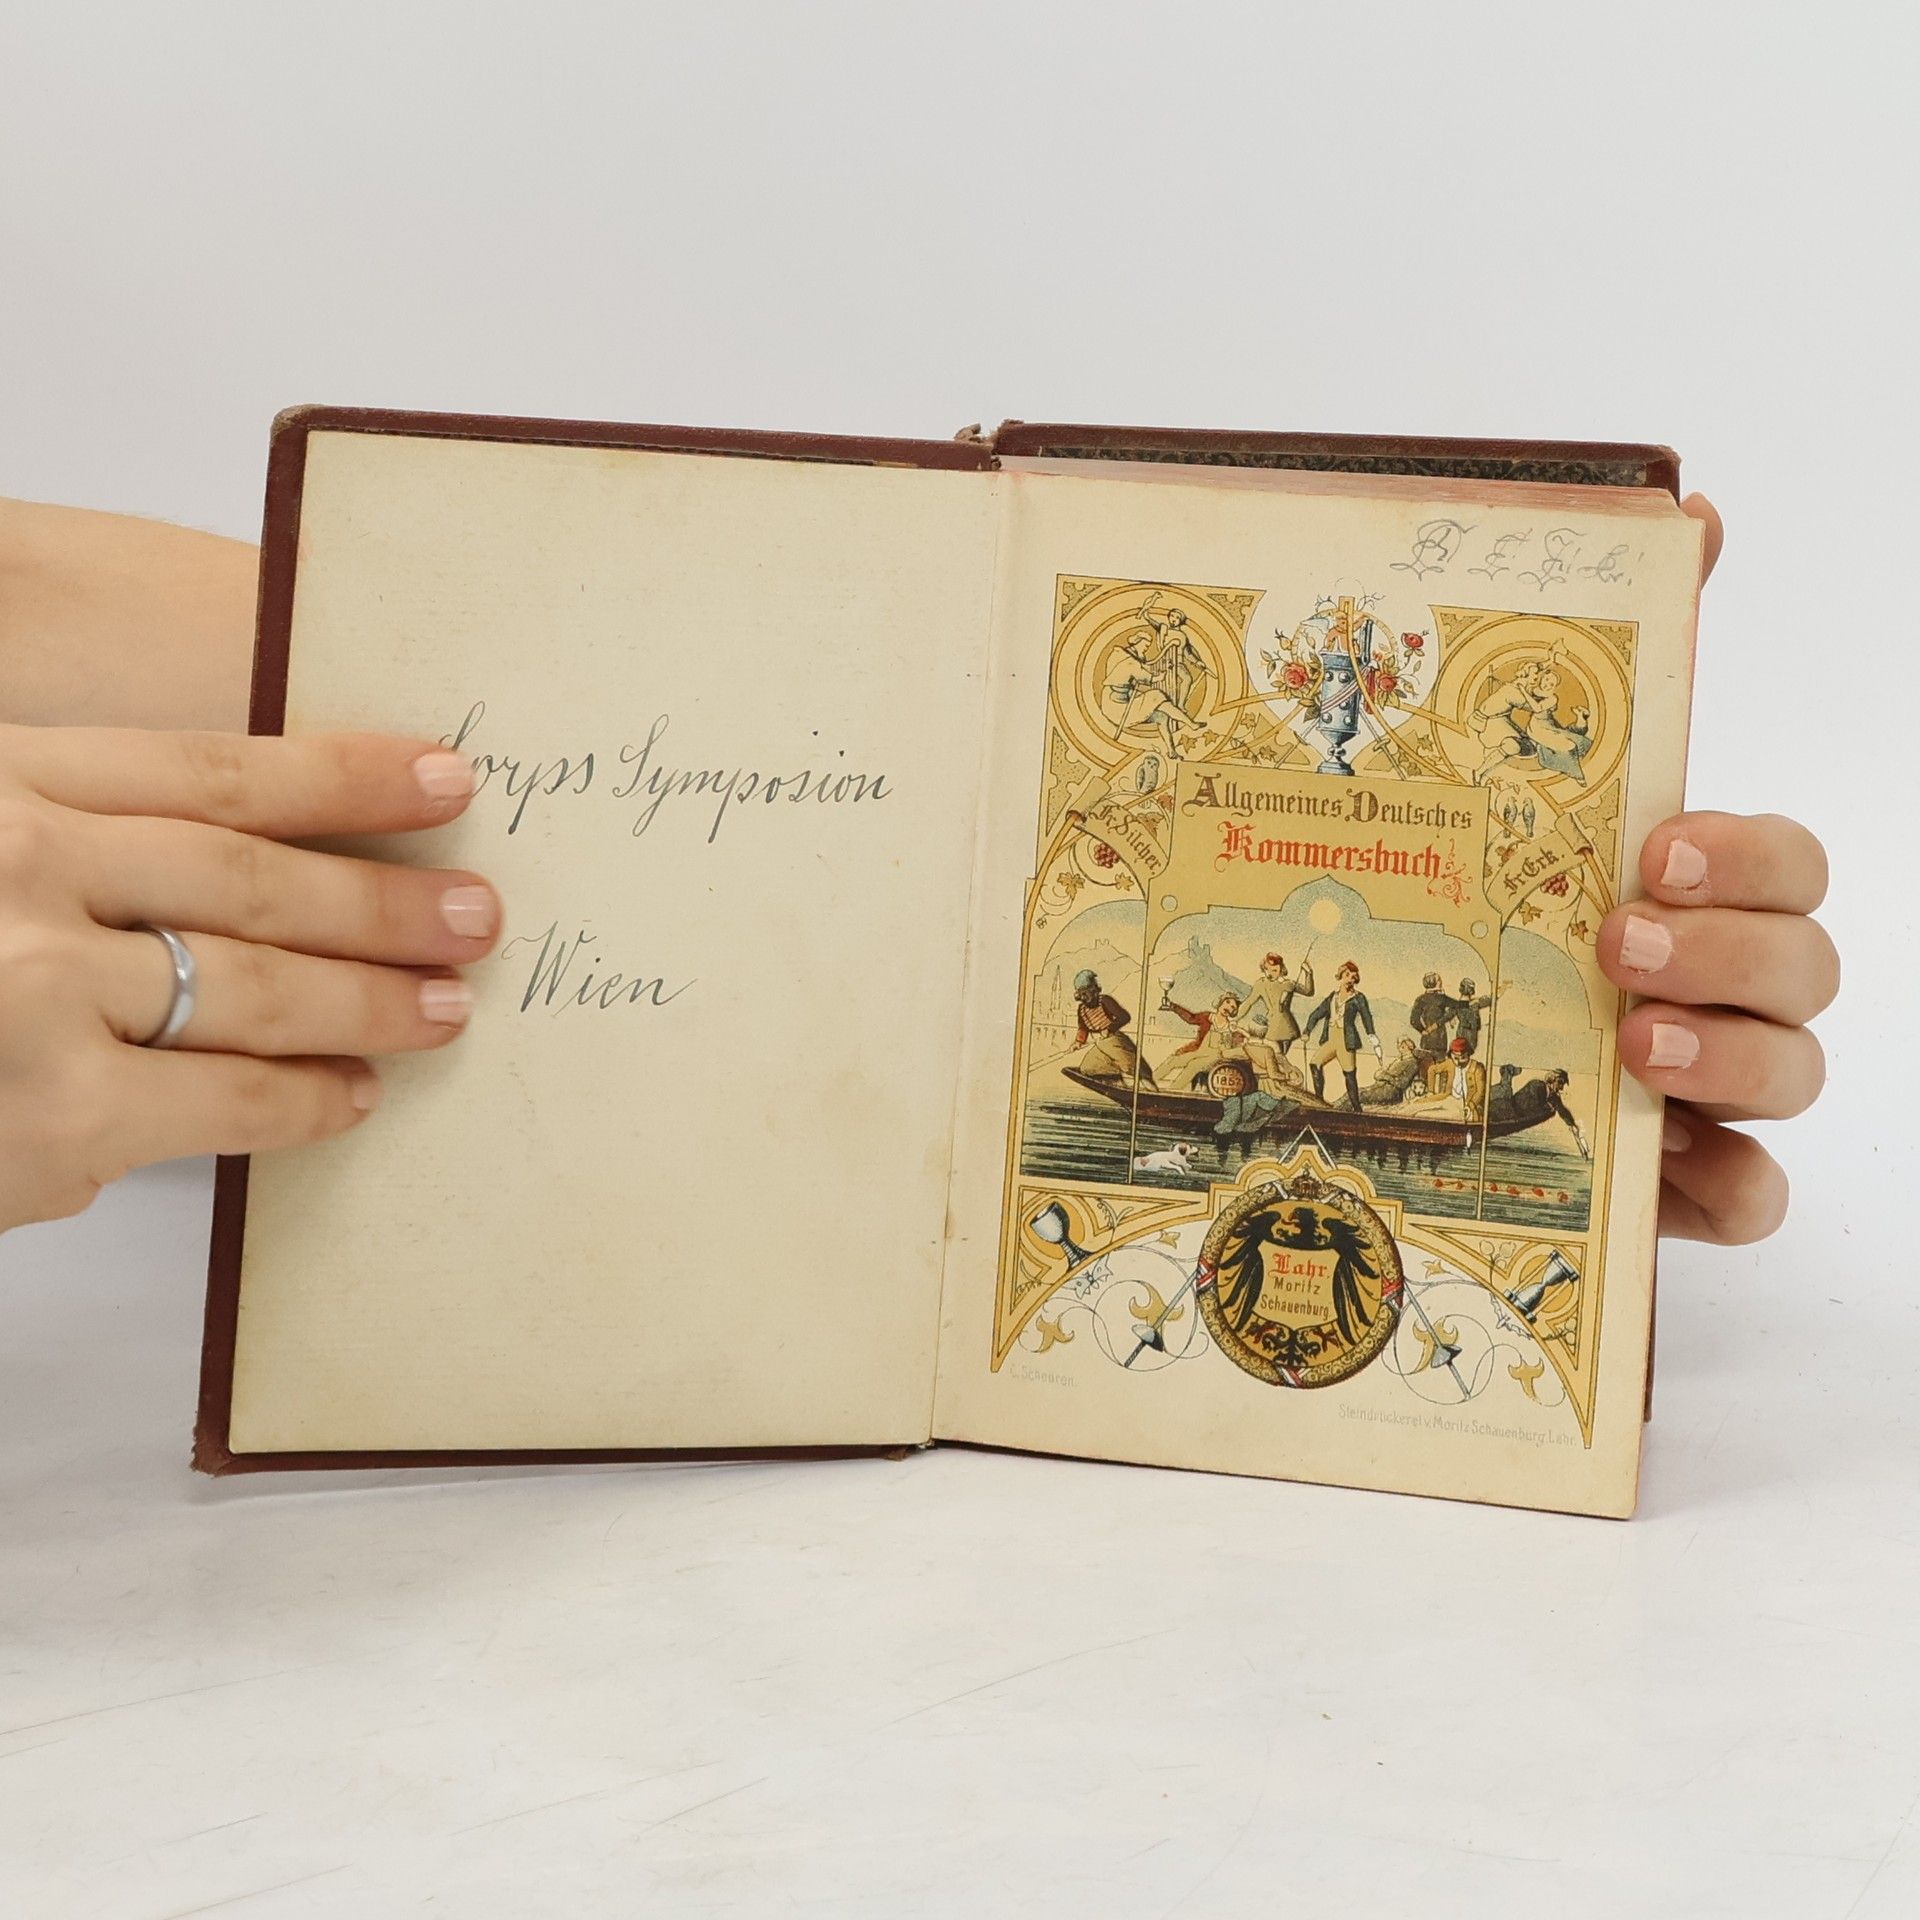 Corps Symposion
Wien
Allgemeines Deutsches
Kommersbuch
Fr. Silcher.
Fr Erk.
1857
Lahr.
Moritz
Schauenburg.
C. Scheuren.
Steindruckerei v. Moritz Schauenburg, Lahr.